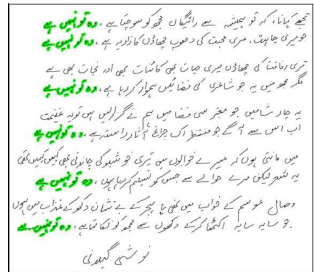 تجھے کیا پتا، کہ تو ہمیشہ سے رائیگاں مجھ کو سوچتا ہے، وہ تو نہیں ہے
جو میری چاہت، مری محبت کی دھوپ چھاؤں کا زاویہ ہے، وہ تو نہیں ہے
تری رفاقت کی چھاؤں میری حیات بھی کائنات بھی اور نجات بھی ہے
مگر مجھ میں یہ جو شاعری کی فضا میں ہموار کر رہا ہے، وہ تو نہیں ہے
یہ چار شامیں جو معتبر سی فضا میں ہم نے گزار لیں ہیں تو یہ غنیمت
اب اس سے آگے جو منتظر اک چراغ آثار راستہ ہے، وہ تو نہیں ہے
میں مانتی ہوں کہ میرے خوابوں میں تیری خوشبو کی چاندنی بھی کہیں کہیں تھی
یہ شہر لیکن مرے حوالے سے جس کو تسلیم کر رہا ہے، وہ تو نہیں ہے
وصال موسم کے خواب میں بھی یا ہجر کے بے نشان دکھ کے عذاب میں بھی
جو سایہ سایہ اکٹھا کر کے دکھوں سے مجھ کو نکالتا ہے، وہ تو نہیں ہے
نوشی گیلانی